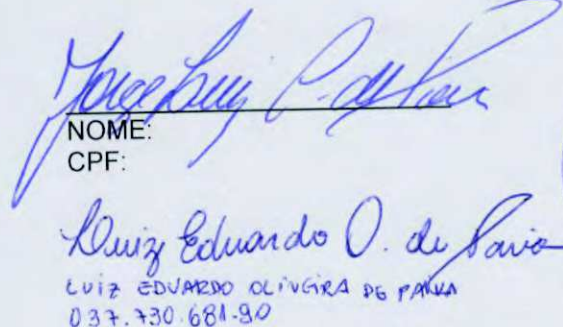 Jorge Luiz P. de
NOME:
CPF:
Luiz Eduardo O. de Paiva
LUIZ EDUARDO OLIVEIRA DE PAIVA
037.730.681-90